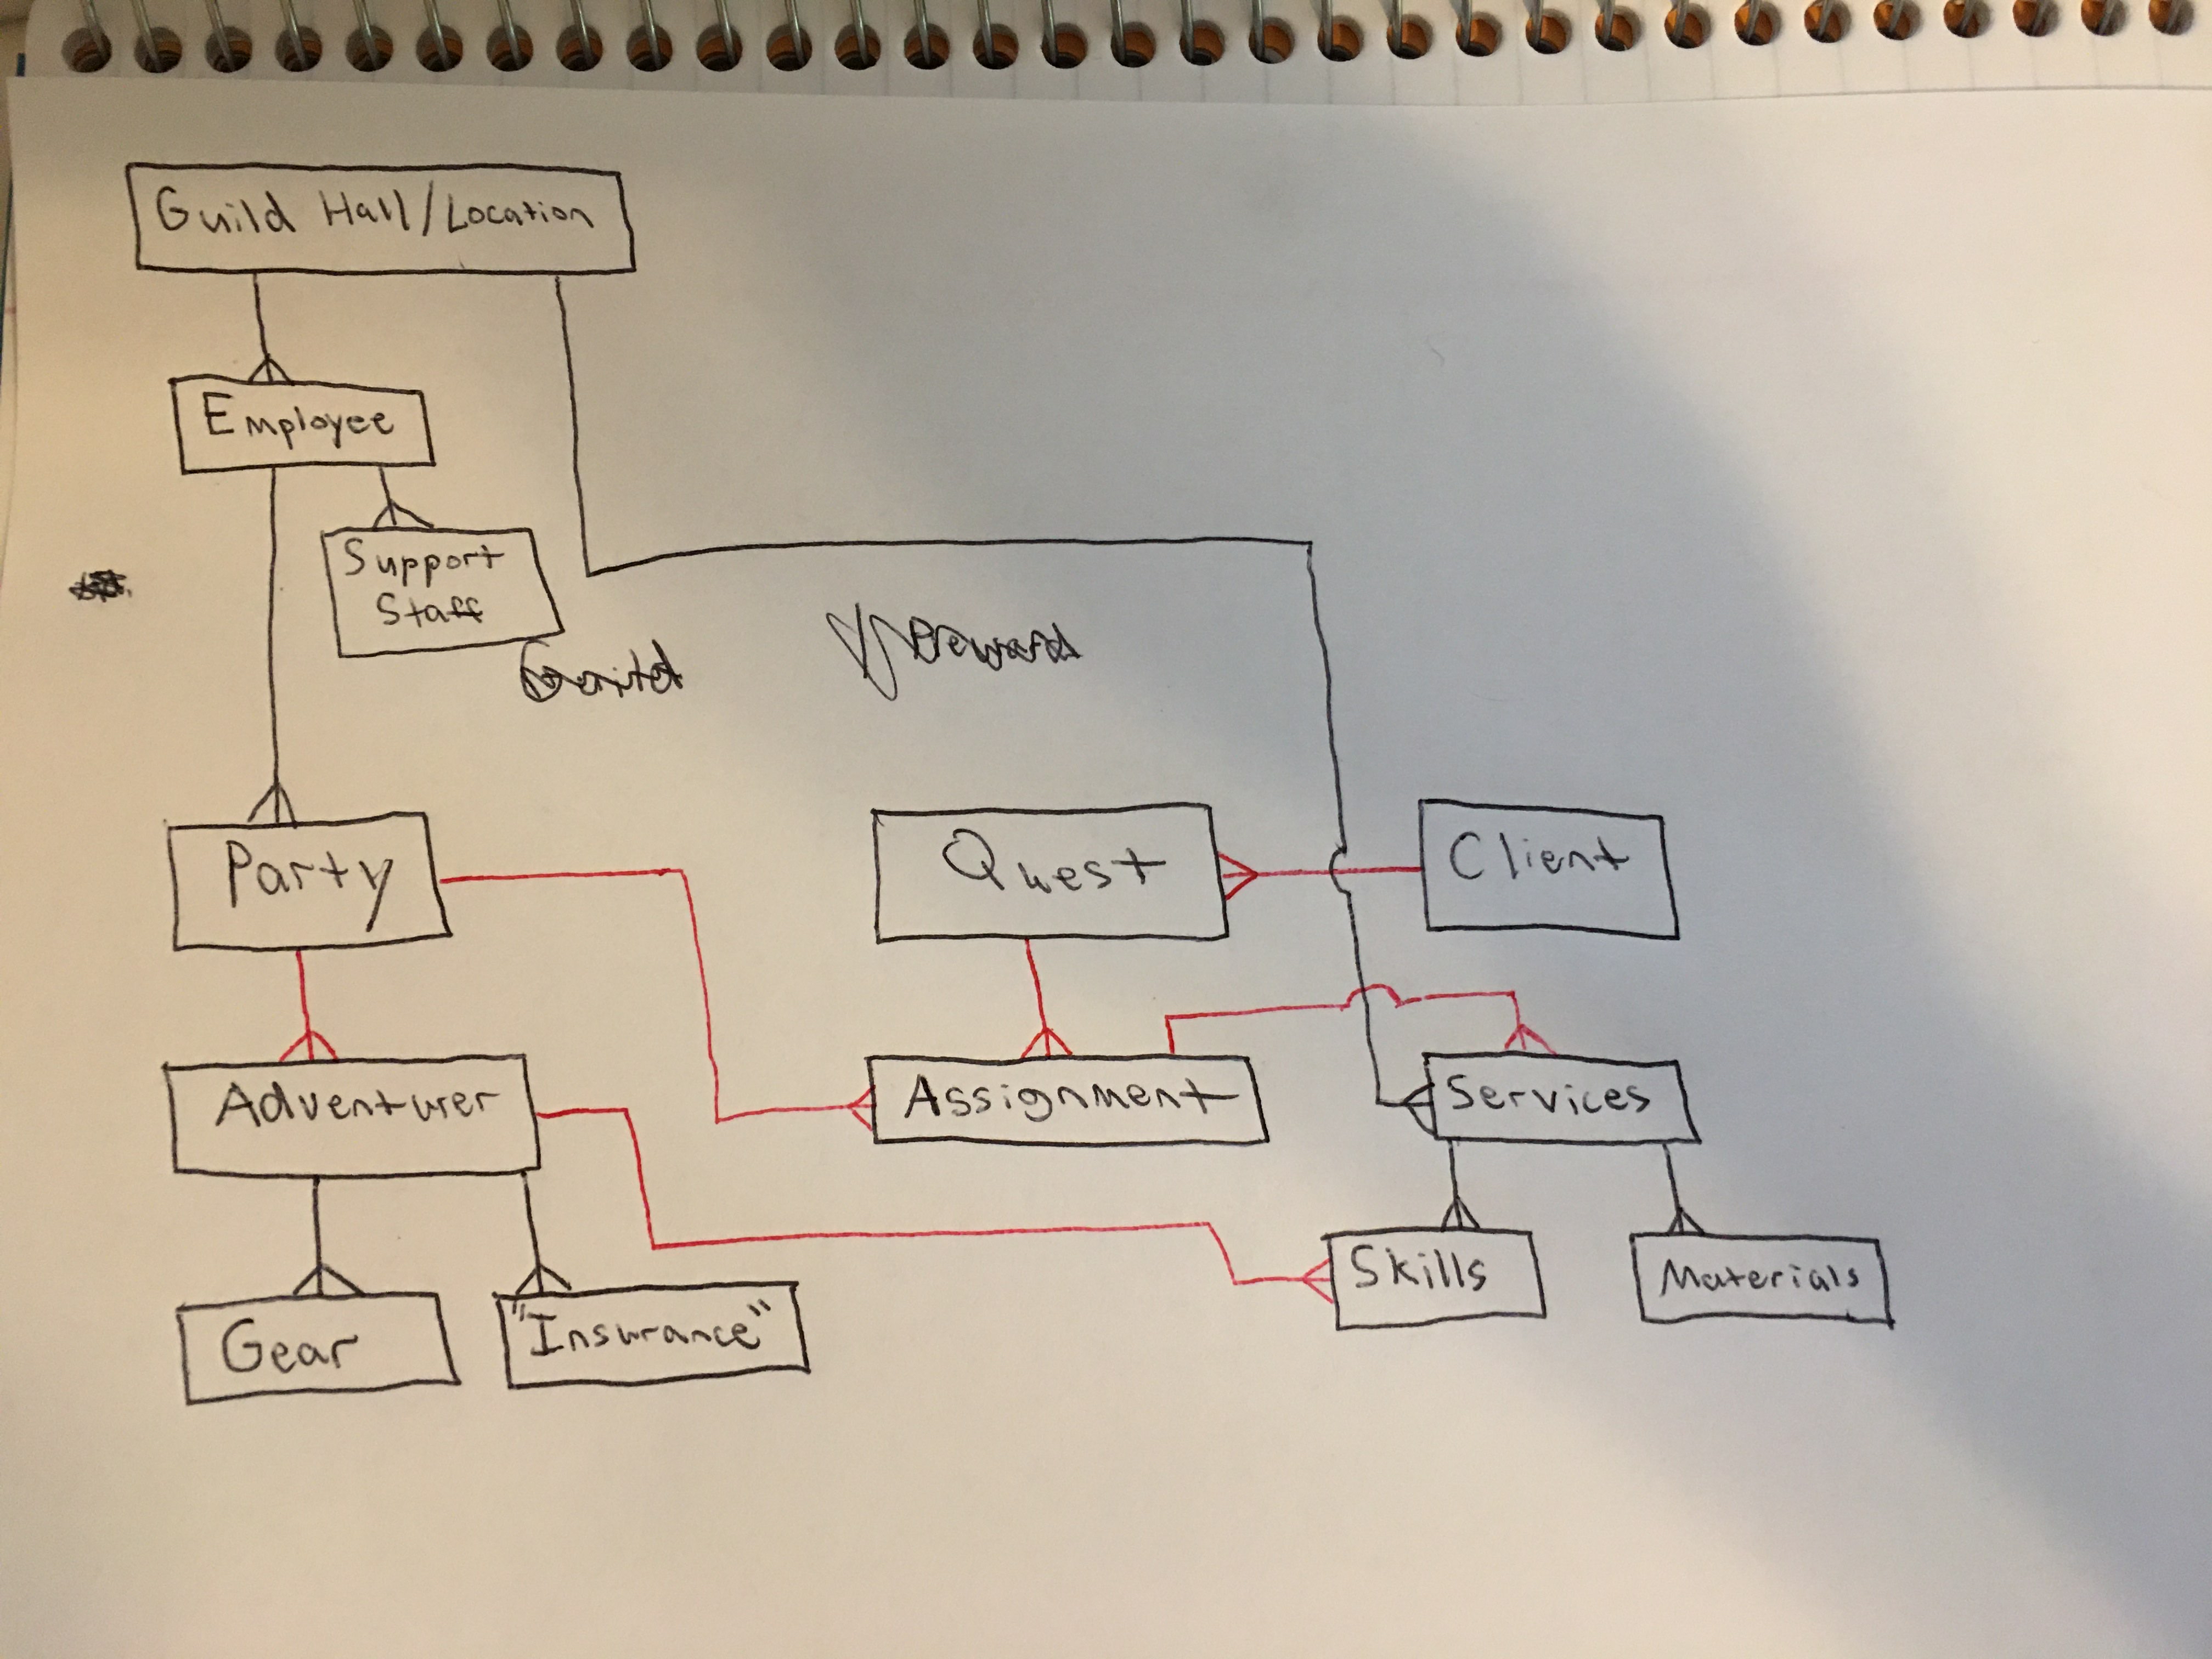 Guild Hall/Location
Employee
Support
Staff
Party
Quest
Client
Adventurer
Assignment
Services
Gear
"Insurance"
Skills
Materials